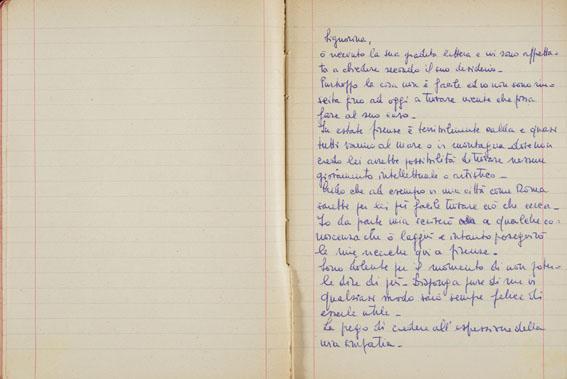 Signorina,
ò ricevuto la sua gradita lettera e mi sono affretta-
ta a chiedere secondo il suo desiderio -
Purtroppo la cosa non è facile ed io non sono riu-
scita fino ad oggi a trovare niente che possa
fare al suo caso -
In estate Firenze è terribilmente calda e quasi
tutti vanno al mare o in montagna non
credo lei avrebbe possibilità di trovare nessun
giovamento intellettuale o artistico -
Credo che ad esempio in una città come Roma
sarebbe per lei più facile trovare ciò che cerca -
Io da parte mia scriverò a qualche co-
noscenza che ò laggiù e intanto proseguirò
le mie ricerche qui a Firenze -
Sono dolente per il momento di non poter-
le dire di più - Disponga pure di me in
qualsiasi modo sarò sempre felice di
esserle utile -
La prego di credere all'espressione della
mia simpatia -